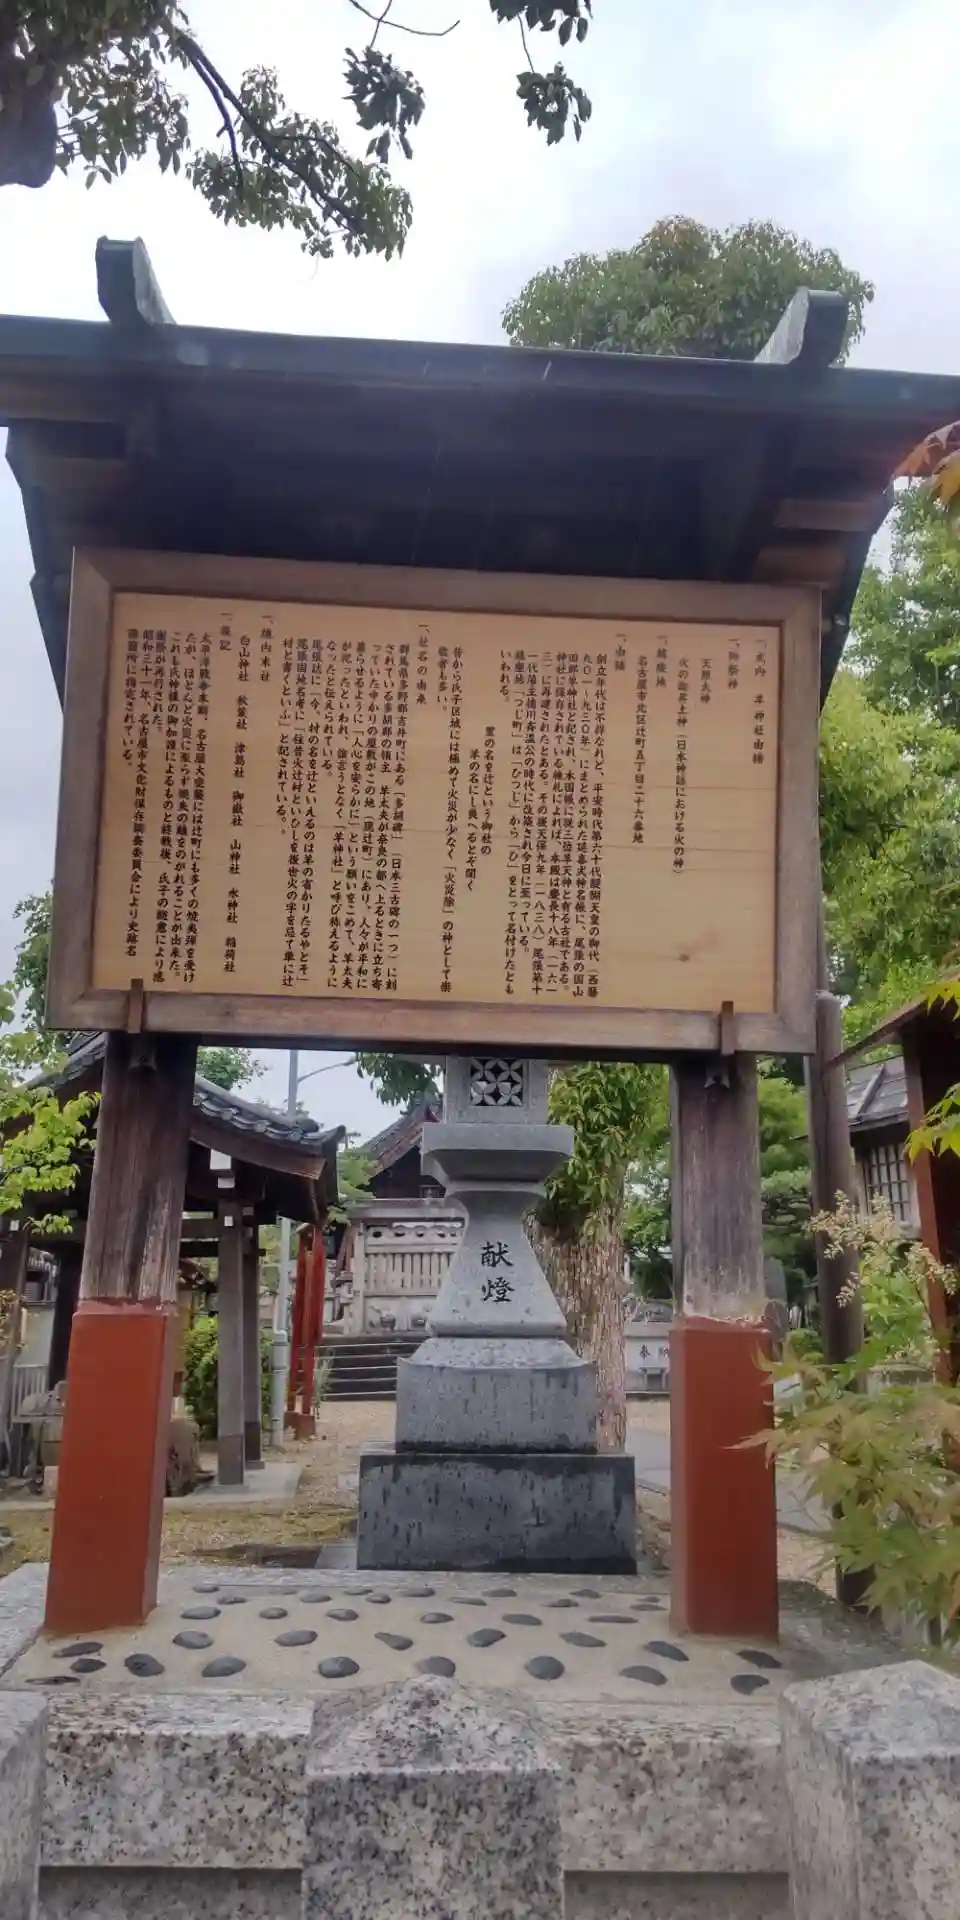 一、式内 羊神社由緒
一、御祭神
天照大神
火の迦具土神（日本神話における火の神）
一、鎮座地
名古屋市北区辻町五丁目二十六番地
一、由緒
創立年代は不祥なれど、平安時代第六十代醍醐天皇の御代（西暦
九〇一〜九三〇年）にまとめられた延喜式神名帳に、尾張の国山
田郡羊神社と記され、本国帳に従三位羊天神と有る古社である。
神社に保存されている棟札によれば、本殿は慶長十八年（一六一
三）に再建されたとある。その後天保九年（一八三八）尾張第十
一代藩主徳川斉温公の時代に改築され今日に至っている。
鎮座地「つじ町」は「ひつじ」から「ひ」をとって名付けたとも
いわれる。
里の名を辻という御社の
羊の名にし負へるとぞ聞く
昔から氏子区域には極めて火災が少なく「火災除」の神として崇
敬者も多い。
一、社名の由来
群馬県多野郡吉井町にある「多胡碑」（日本三古碑の一つ）に刻
されている多胡郡の領主 羊太夫が奈良の都へ上るときに立ち寄
っていたゆかりの屋敷がこの地（現辻町）にあり、人々が平和に
暮らせるように「人心を安らかに」という願いをこめて、羊太夫
が祀ったといわれ、誰言うとなく「羊神社」と呼び称えるように
なったと伝えられている。
尾張志に「今、村の名を辻といえるのは羊の省かりたるやとぞ」
尾張国地名考に「往昔火辻村といひしを後世火の字を忌て単に辻
村と書くといふ」と記されている。
一、境内末社
白山神社 秋葉社 津島社 御嶽社 山神社 水神社 稲荷社
一、後記
太平洋戦争末期、名古屋大空襲には辻町にも多くの焼夷弾を受け
たが、ほとんど火災に至らず焼失の難をのがれることが出来た。
これも氏神様の御加護によるものと終戦後、氏子の総意により感
謝祭が再行された。
昭和三十一年、名古屋市文化財保存調査委員会により史跡名
勝箇所に指定されている。
献燈
奉納